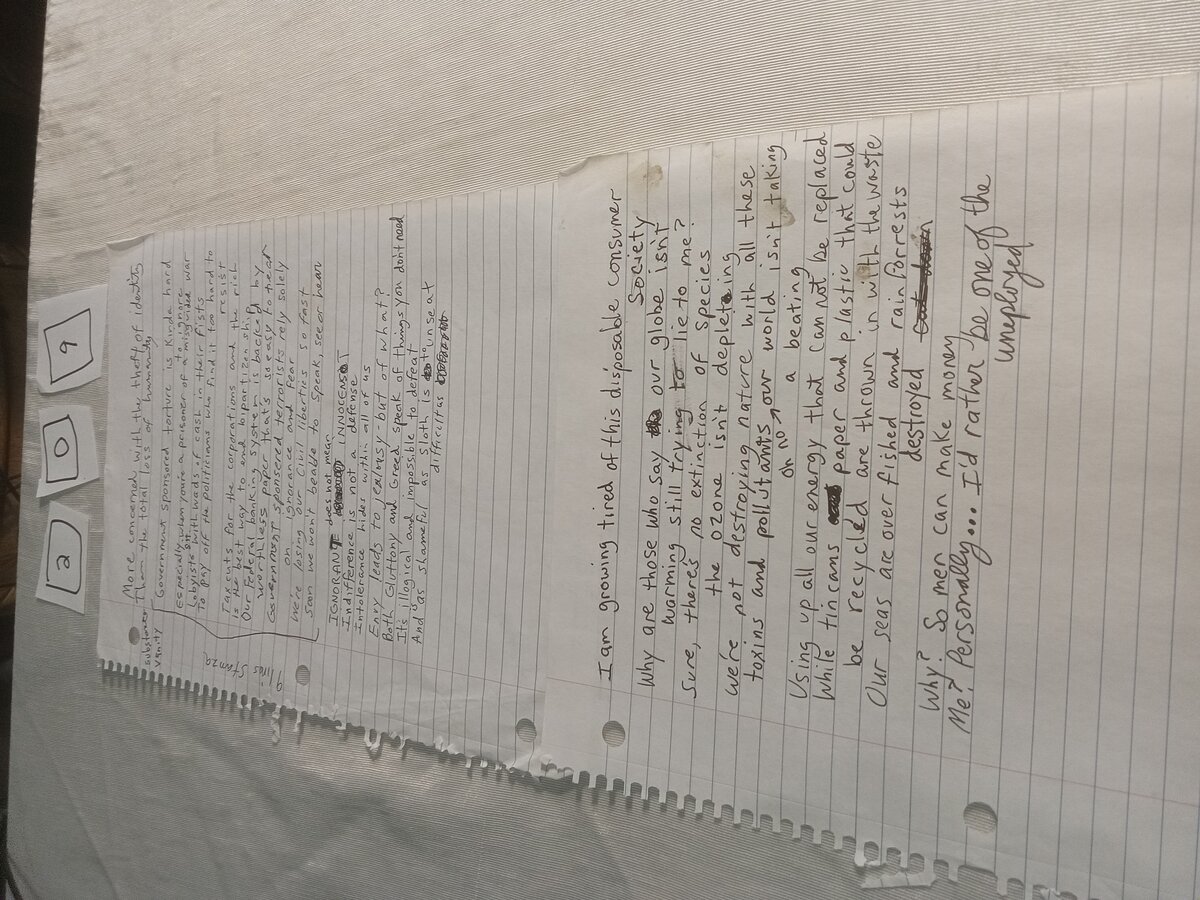 2
0
9
More concerned with the theft of identity
Them the total loss of humanity
substance
vanity
Government sponsored torture is kinda hard
to ignore
Especially when you're a prisoner of a misguided war
Lobyists sit with wads of cash in their fists
To pay off the politicians who find it too hard to
resist
Taxcuts for the corporations and the rich
is the best way to end bipartizen ship
Our Federal banking system is backed by
worthless paper that's so easy to tear
Government sponsered terrorists rely solely
on ignorance and fear
We're losing our civil liberties so fast
Soon we won't beable to speak, see or hear
9 lines
- Stanza
IGNORANT does not mean INNOCENT
-Indifference is not a defense
Intolerance hides within all of us
Envy leads to jealousy - out of what?
Both Gluttony and Greed speak of things you dont need
It's illogical and impossible to defeat
And as shameful as sloth is to unseat
difficult as
I am growing tired of this disposable consumer
Society
Why are those who say our globe isn't
warming still trying to lie to me?
Sure, there's no extinction of species
the ozone isn't depleteing
We're not destroying nature with all these
toxins and pollutants
Oh no → our world isn't taking
a beating
Using up all our energy that can not be replaced
While tin cans paper and plastic that could
be recycled are thrown in with the waste
Our seas are over fished and rain forrests
destroyed
Why? So men can make money
Me? Personally... I'd rather be one of the
uneployed